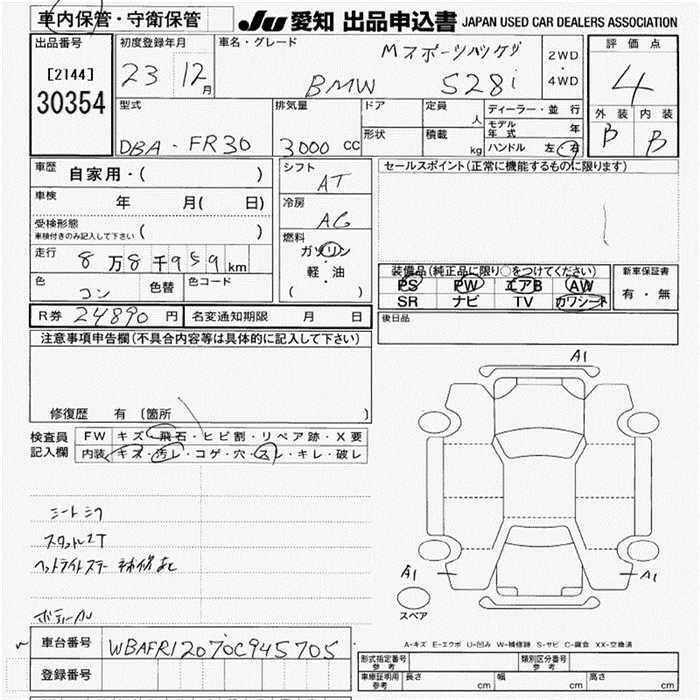 車内保管・守衛保管 JU 愛知 出品申込書 JAPAN USED CAR DEALERS ASSOCIATION
出品番号 [2144] 30354
初度登録年月 23 12月
車名・グレード Mスポーツパッケジ BMW 528i
2WD・4WD
評価点 4
外装 内装
B B
型式 DBA-FR30
排気量 3000 cc
ドア 定員 人
形状 積載 kg
ディーラー・並行
モデル年式 年
ハンドル 左・右
車歴 自家用・( )
車検 年 月( 日)
受検形態 ( )
車検付きのみ記入して下さい
走行 8万8千959km
色 コン 色替 色コード
シフト AT
冷房 AC
燃料 ガソリン・軽・油
( )
セールスポイント(正常に機能するものに限ります)
装備品(純正品に限り○をつけてください)
PS PW エアB AW
SR ナビ TV カワシート
新車保証書
有・無
R券 24890円 名変通知期限 月 日
後日品
注意事項申告欄(不具合内容等は具体的に記入して下さい)
修復歴 有 〔箇所 〕
検査員記入欄 FW キズ・飛石・ヒビ割・リペア跡・X要
内装 キズ・汚レ・コゲ・穴・スレ・キレ・破レ
シートシワ
ヘッドライトステー 補修あと
A1
A1
A1
スペア
A-キズ E-エクボ U-凹み W-補修跡 S-サビ C-腐食 XX-交換済
車台番号 WBAFR12070C945705
登録番号
形式指定番号 参考 類別区分番号 参考
車庫証明用 参考 長さ cm 幅 cm 高さ cm